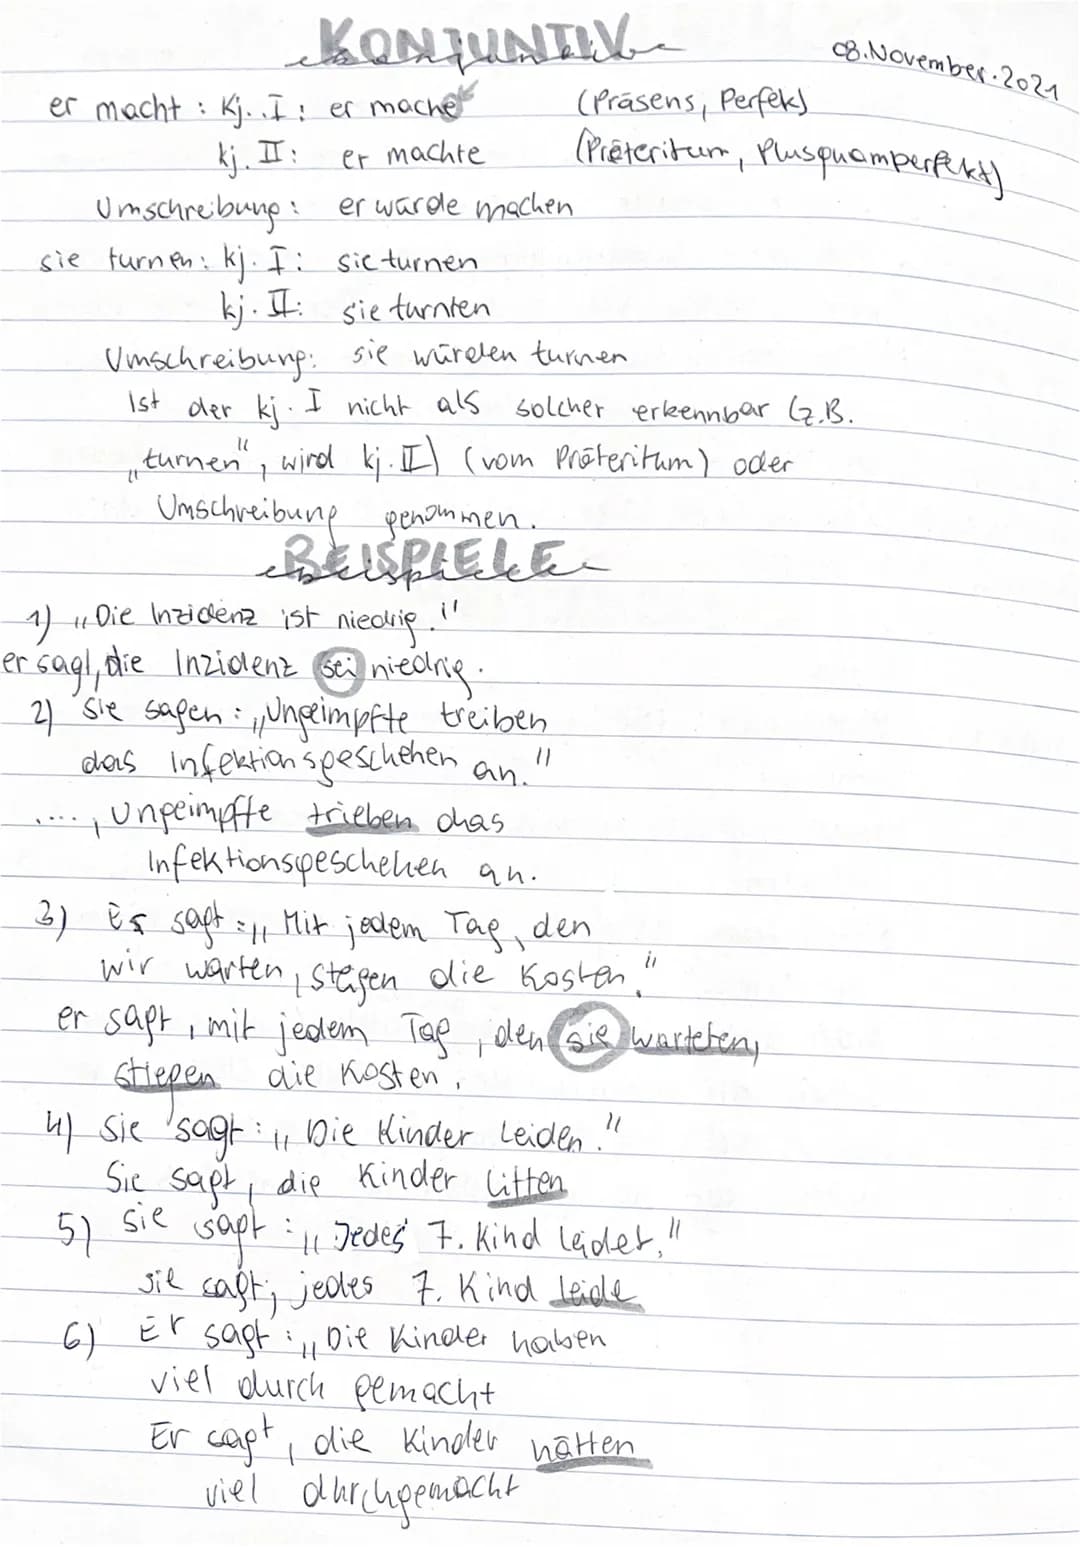 KONJUNTIV
08. November. 2021
er macht : Kj. I : er mache (Präsens, Perfek)
kj. II : er machte (Präteritum, Plusquamperfekt)
Umschreibung : er würde machen
sie turnen : kj. I : sie turnen
kj. II : sie turnten
Umschreibung : sie würden turnen
Ist der kj. I nicht als solcher erkennbar (z.B.
„turnen", wird kj. II) (vom Präteritum) oder
Umschreibung genommen.
BEISPIELE
1) „Die Inzidenz ist niedrig."
er sagt, die Inzidenz sei niedrig.
2) Sie sagen : „Ungeimpfte treiben
das Infektionsgeschehen an."
...., Ungeimpfte trieben das
Infektionsgeschehen an.
3) Er sagt : „Mit jedem Tag, den
wir warten, steigen die Kosten."
er sagt, mit jedem Tag, den sie warteten,
stiegen die Kosten.
4) Sie sagt : „Die Kinder leiden."
Sie sagt, die Kinder litten
5) Sie sagt : „Jedes 7. Kind leidet."
sie sagt, jedes 7. Kind leide
6) Er sagt : „Die Kinder haben
viel durch gemacht
Er sagt, die Kinder hätten
viel durchgemacht